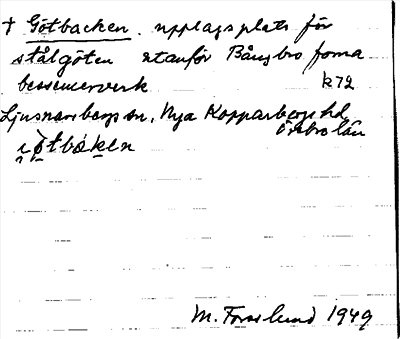 † Götbacken. upplagsplats för
stålgöten utanför Bångbro forna
bessemerverk k72
Ljusnarsbergs sn, Nya Kopparbergs hd,
Örebro län
M. Forslund 1949